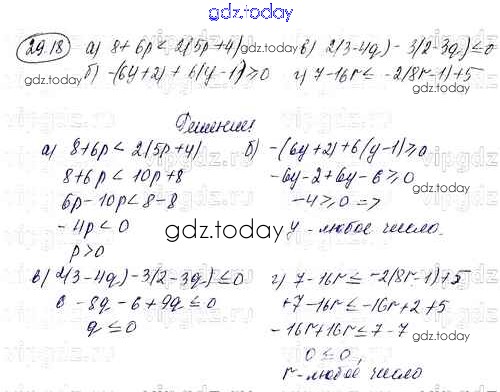 gdz.today
29.18 а) 8+6p < 2(5p+4) в) 2(3-4q)-3(2-3q)≤0
б) -(6y+2)+6(y-1)≥0 г) 7-16r≤ -2(8r-1)+5
Решение:
а) 8+6p < 2(5p+4)
8+6p < 10p+8
6p-10p<8-8
-4p<0
p>0
б) -(6y+2)+6(y-1)≥0
-6y-2+6y-6≥0
-4≥0 =>
y - любое число.
в) 2(3-4q)-3(2-3q)≤0
6-8q-6+9q≤0
q≤0
г) 7-16r≤ -2(8r-1)+5
+7-16r≤-16r+2+5
-16r+16r≤7-7
0≤0,
r-любое число
gdz.today
gdz.today
gdz.today
gdz.today
gdz.today
gdz.today
gdz.today
gdz.today
gdz.today